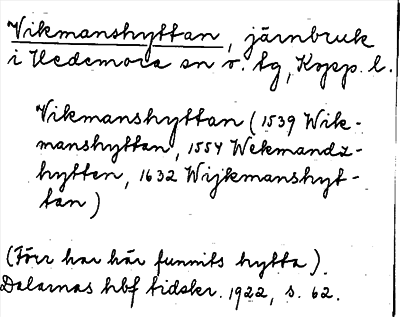 Vikmanshyttan, järnbruk
i Hedemora sn o. tg, Kopp. l.
Vikmanshyttan (1539 Wik-
manshyttan, 1554 Wekmandz-
hytten, 1632 Wijkmanshyt-
tan)
(Förr har här funnits hytta).
Dalarnas hbf tidskr. 1922, s. 62.